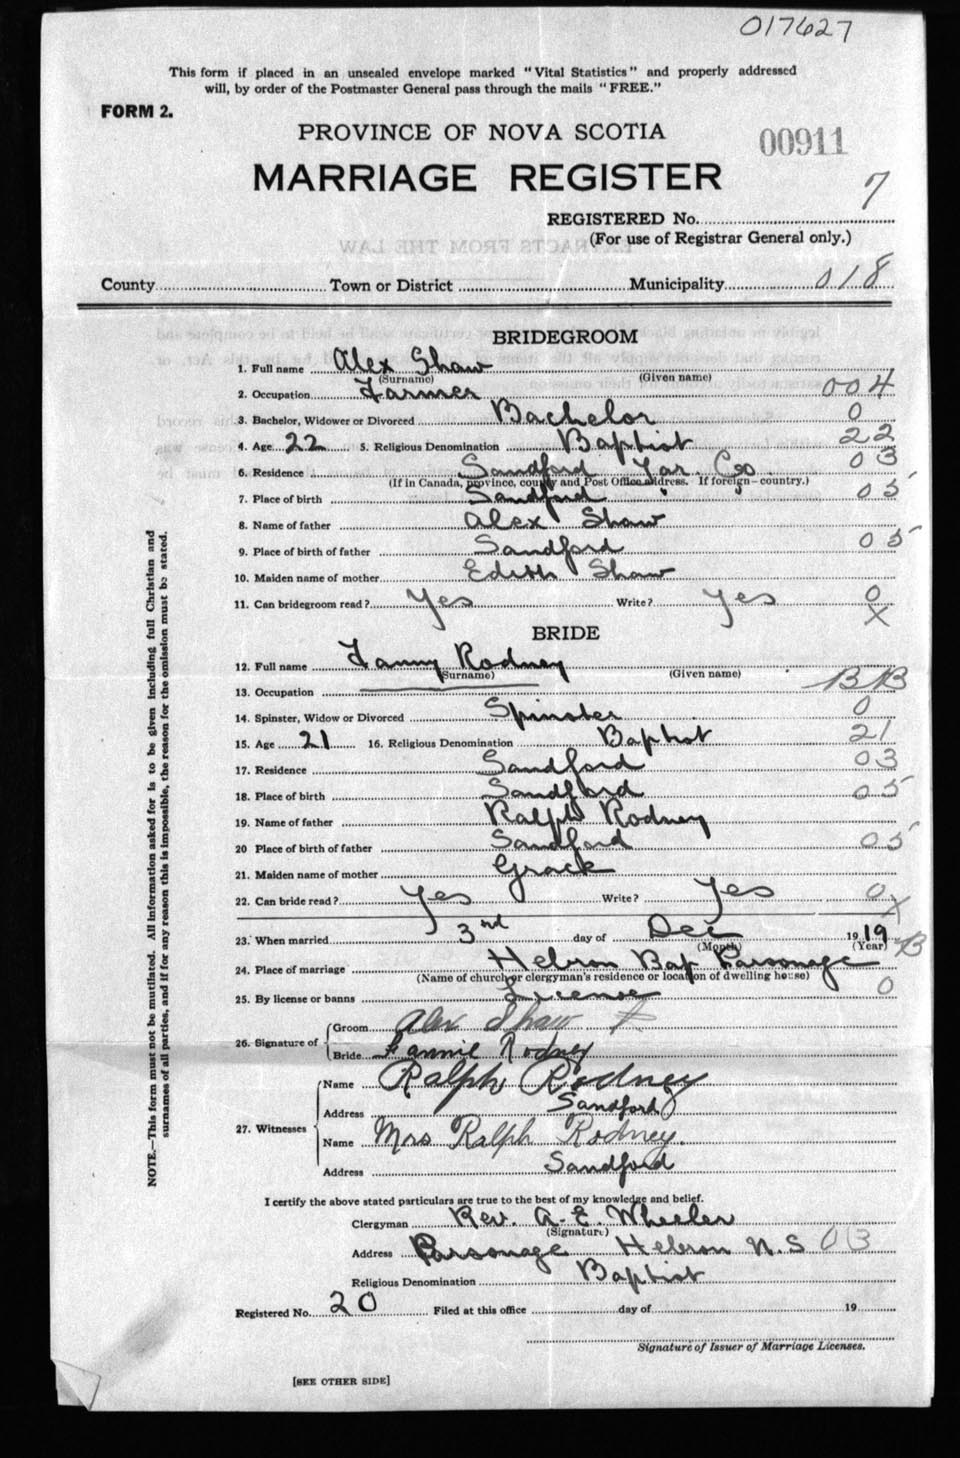 017627
This form if placed in an unsealed envelope marked "Vital Statistics" and properly addressed
will, by order of the Postmaster General pass through the mails "FREE."
FORM 2.
PROVINCE OF NOVA SCOTIA
00911
MARRIAGE REGISTER
7
REGISTERED No.
(For use of Registrar General only.)
EXTRACTS FROM THE LAW
County Town or District Municipality 018
BRIDEGROOM
1. Full name Alex Shaw
(Surname) (Given name)
2. Occupation Farmer 004
3. Bachelor, Widower or Divorced Bachelor 0
4. Age 22 5. Religious Denomination Baptist 22
6. Residence Sandford Yar. Co. 03
(If in Canada, province, county and Post Office address. If foreign—country.)
7. Place of birth Sandford 05
8. Name of father Alex Shaw
9. Place of birth of father Sandford 05
10. Maiden name of mother Edith Shaw
11. Can bridegroom read? Yes Write? Yes 0
X
BRIDE
12. Full name Fanny Rodney
(Surname) (Given name)
13. Occupation BB
14. Spinster, Widow or Divorced Spinster 0
15. Age 21 16. Religious Denomination Baptist 21
17. Residence Sandford 03
18. Place of birth Sandford 05
19. Name of father Ralph Rodney
20 Place of birth of father Sandford 05
21. Maiden name of mother
22. Can bride read? Yes Write? Yes 0
X
23. When married 3nd day of Dec 1919
(Month) (Year) B
24. Place of marriage Hebron Bap Parsonage
(Name of church or clergyman's residence or location of dwelling house)
25. By license or banns License 0
26. Signature of Groom Alex Shaw
Bride Fannie Rodney
27. Witnesses
Name Ralph Rodney
Address Sandford
Name Mrs Ralph Rodney.
Address Sandford
I certify the above stated particulars are true to the best of my knowledge and belief.
Clergyman Rev. A. E. Wheeler
(Signature)
Address Parsonage Hebron N.S 03
Religious Denomination Baptist
Registered No. 20 Filed at this office day of 19
Signature of Issuer of Marriage Licenses.
[SEE OTHER SIDE]
NOTE.—This form must not be mutilated. All information asked for is to be given including full Christian and
surnames of all parties, and if for any reason this is impossible, the reason for the omission must be stated.